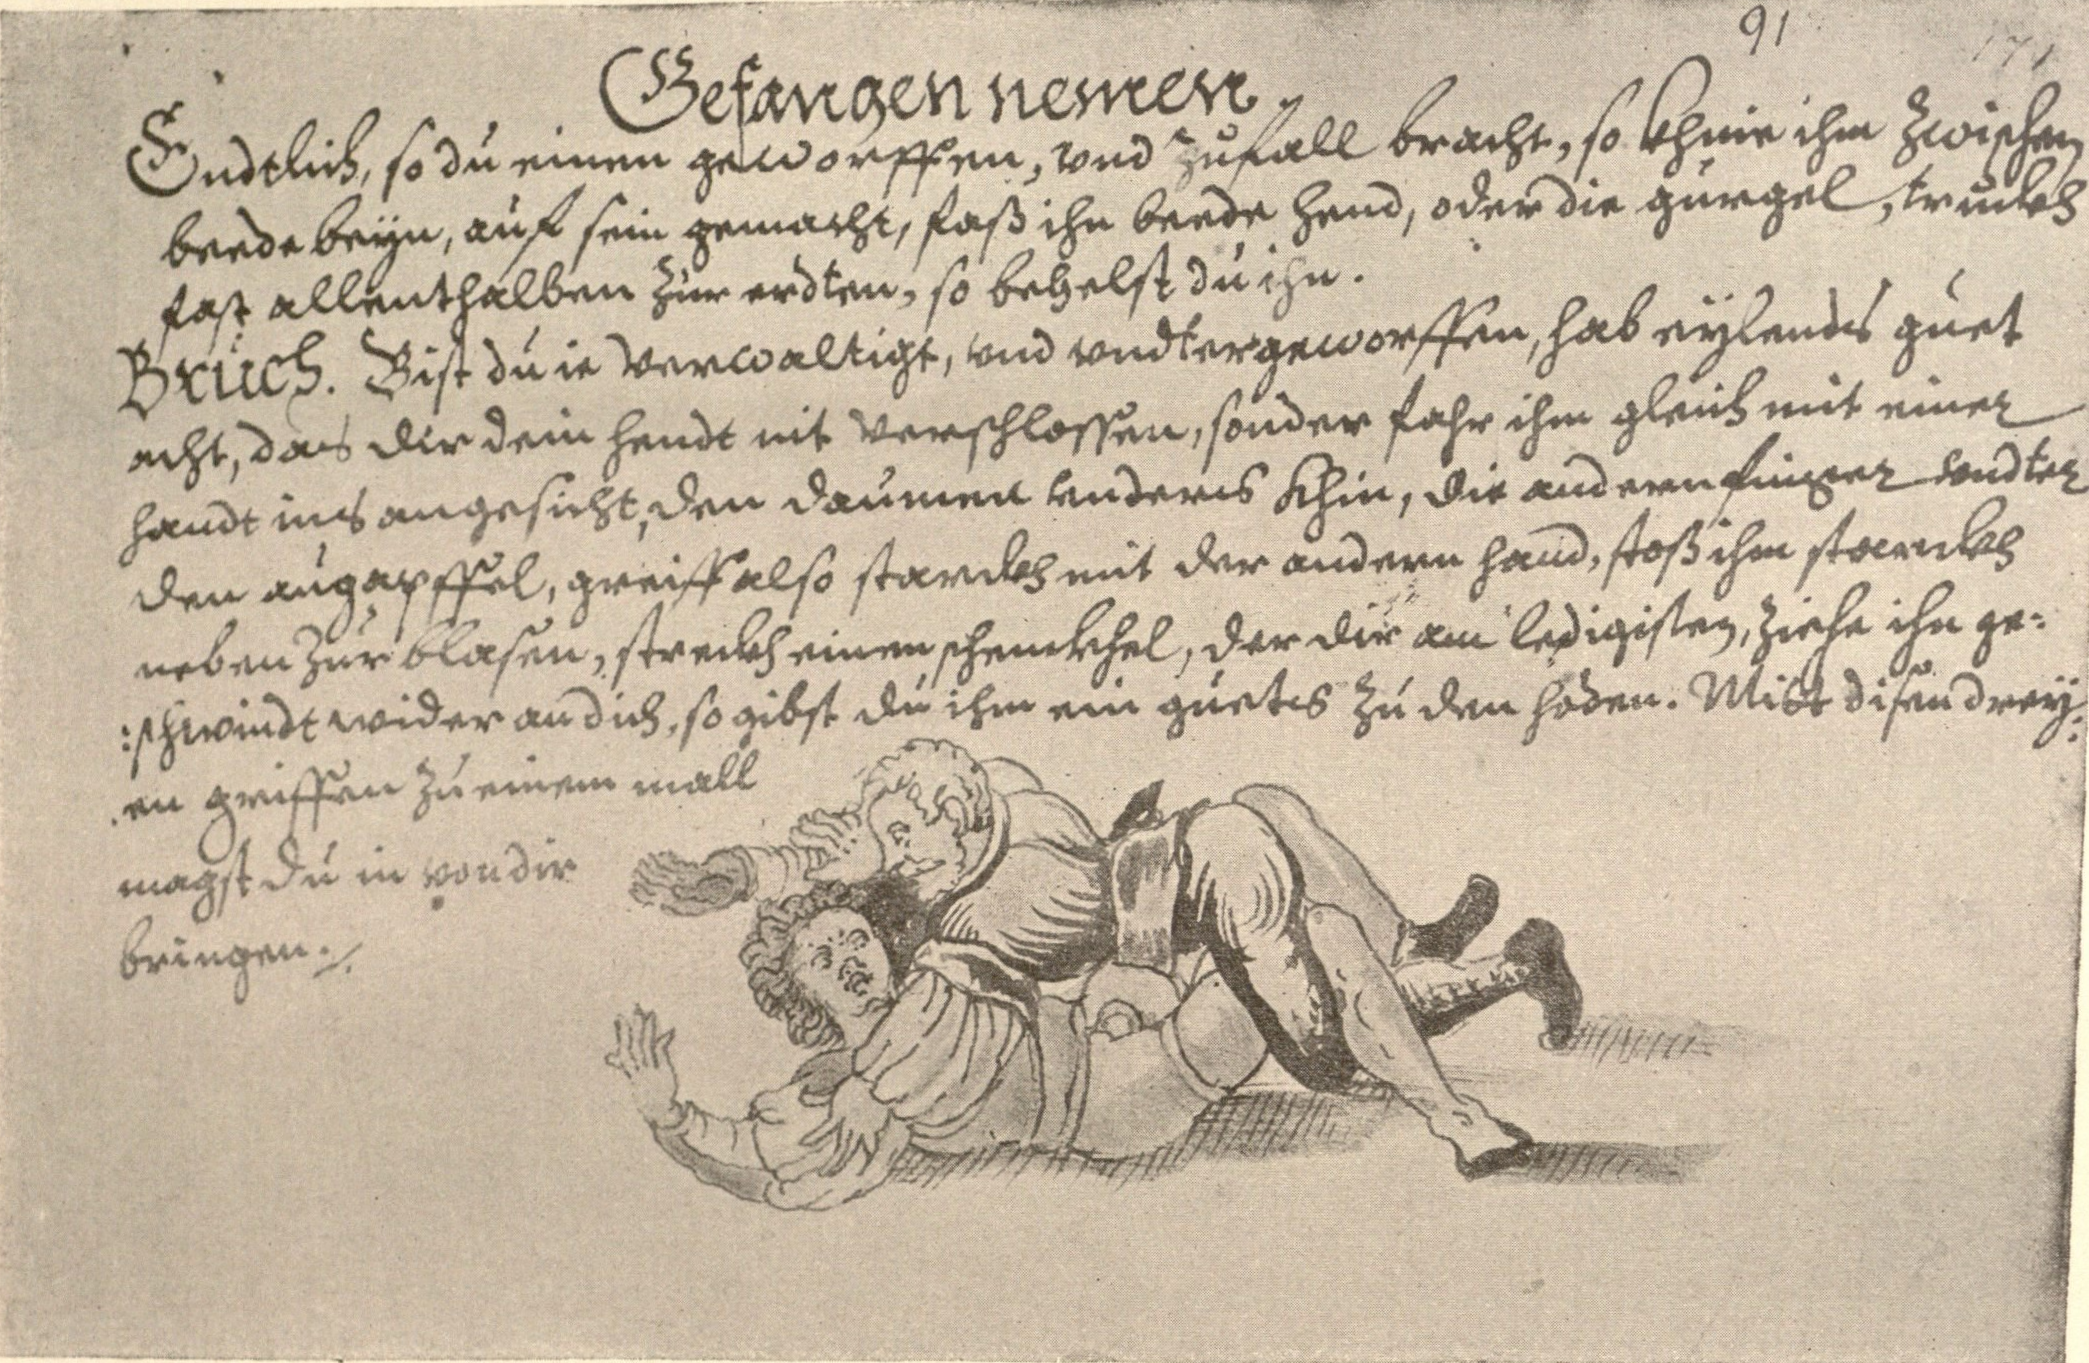 91
Gefangen nemen.
Endtlich, so du einen geworffen, vnd zufall bracht, so khnie ihm zwischen
beede beyn, auf sein gemacht, faß ihn beede hend, oder die gurgel, truckh
fast allenthalben zur erdten, so behelst du ihn.
Bruch. Bist du ie verwaltigt, vnd vndtergeworffen, hab eylends guet
acht, das dir dein hendt nit verschlossen, sonder fahr ihm gleich mit einer
handt ins angesicht, den daumen vnders khin, die andern finger vndter
den augapffel, greiff also starckh mit der andern hand, stoß ihm starckh
neben zur blasen, streckh einen schenckhel, der dir am ledigisten, ziehe ihn ge:
:schwindt wider an dich, so gibst du ihm ein guets zu den hoden. Mitt disen drey:
.en griffen zu einem mall
magst du in von dir
bringen.